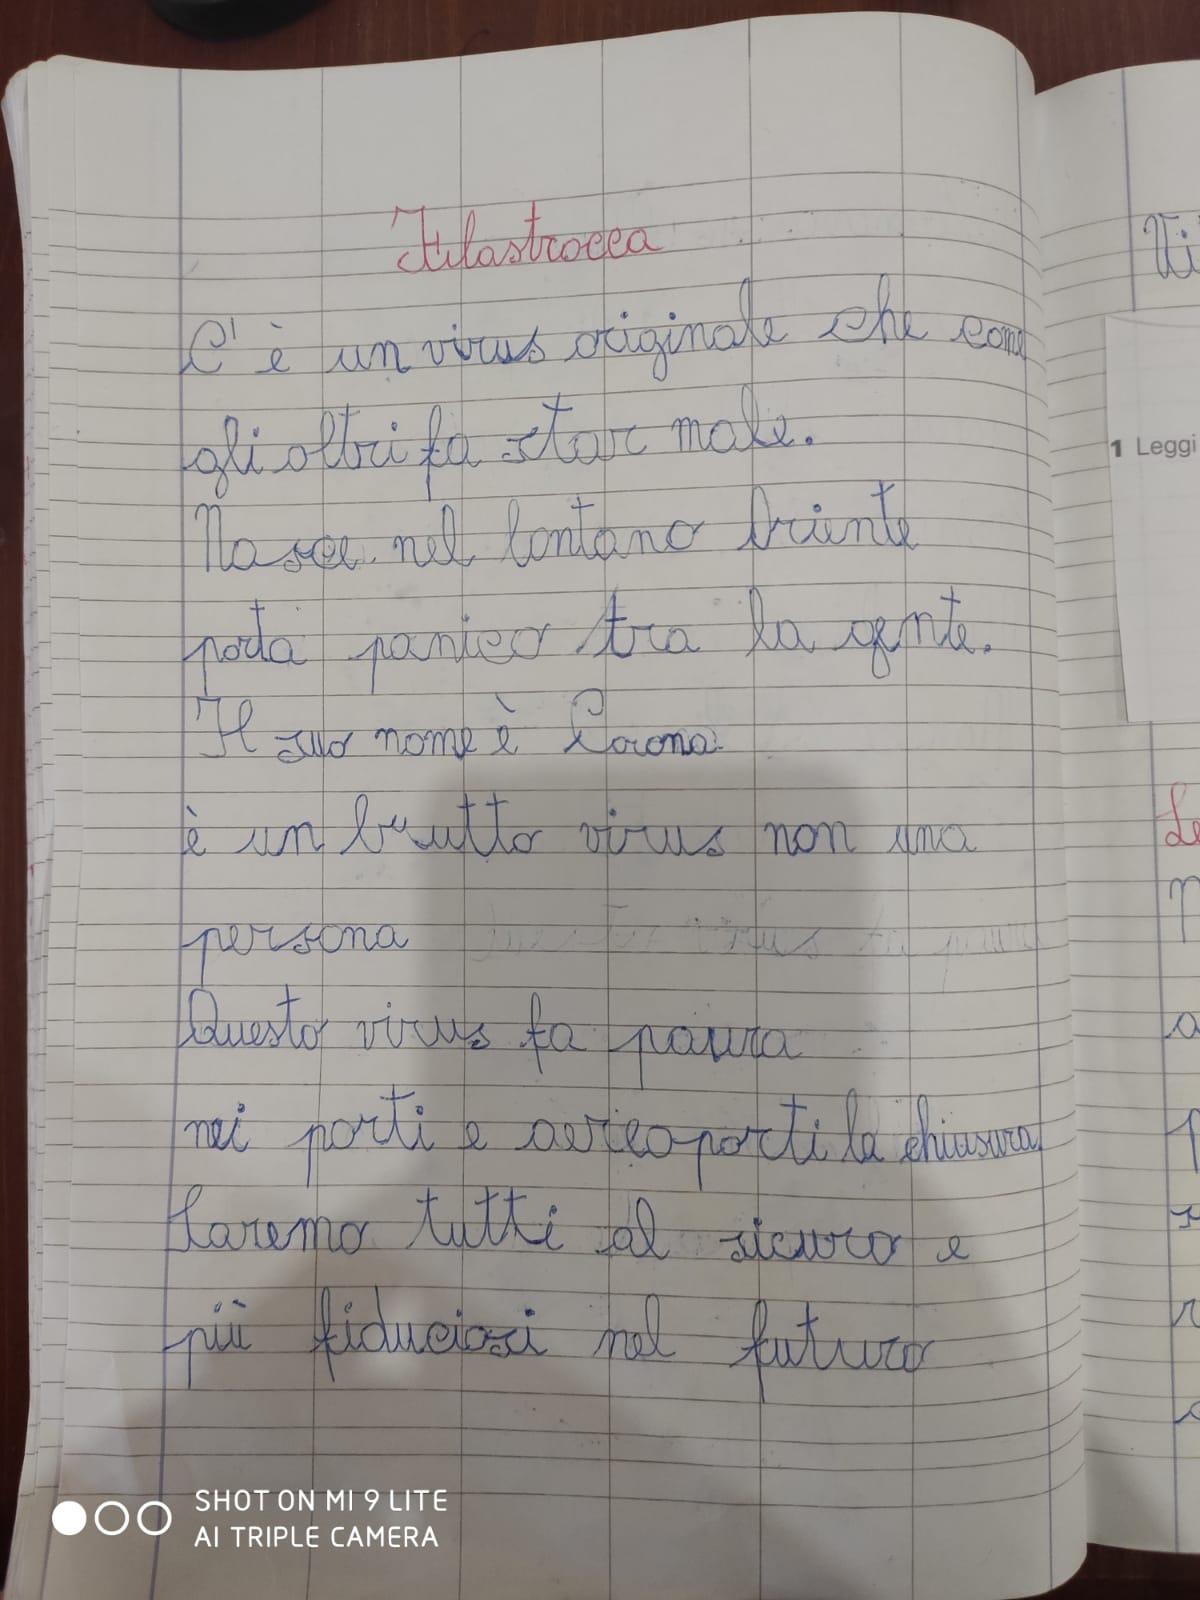 Filastrocca
C'è un virus originale che come
gli altri fa star male.
Nasce nel lontano Oriente
porta panico tra la gente.
Il suo nome è Corona
è un brutto virus non una
persona
Questo virus fa paura
nei porti e aereoporti la chiusura
Saremo tutti al sicuro e
più fiduciosi nel futuro
1 Leggi
SHOT ON MI 9 LITE
AI TRIPLE CAMERA